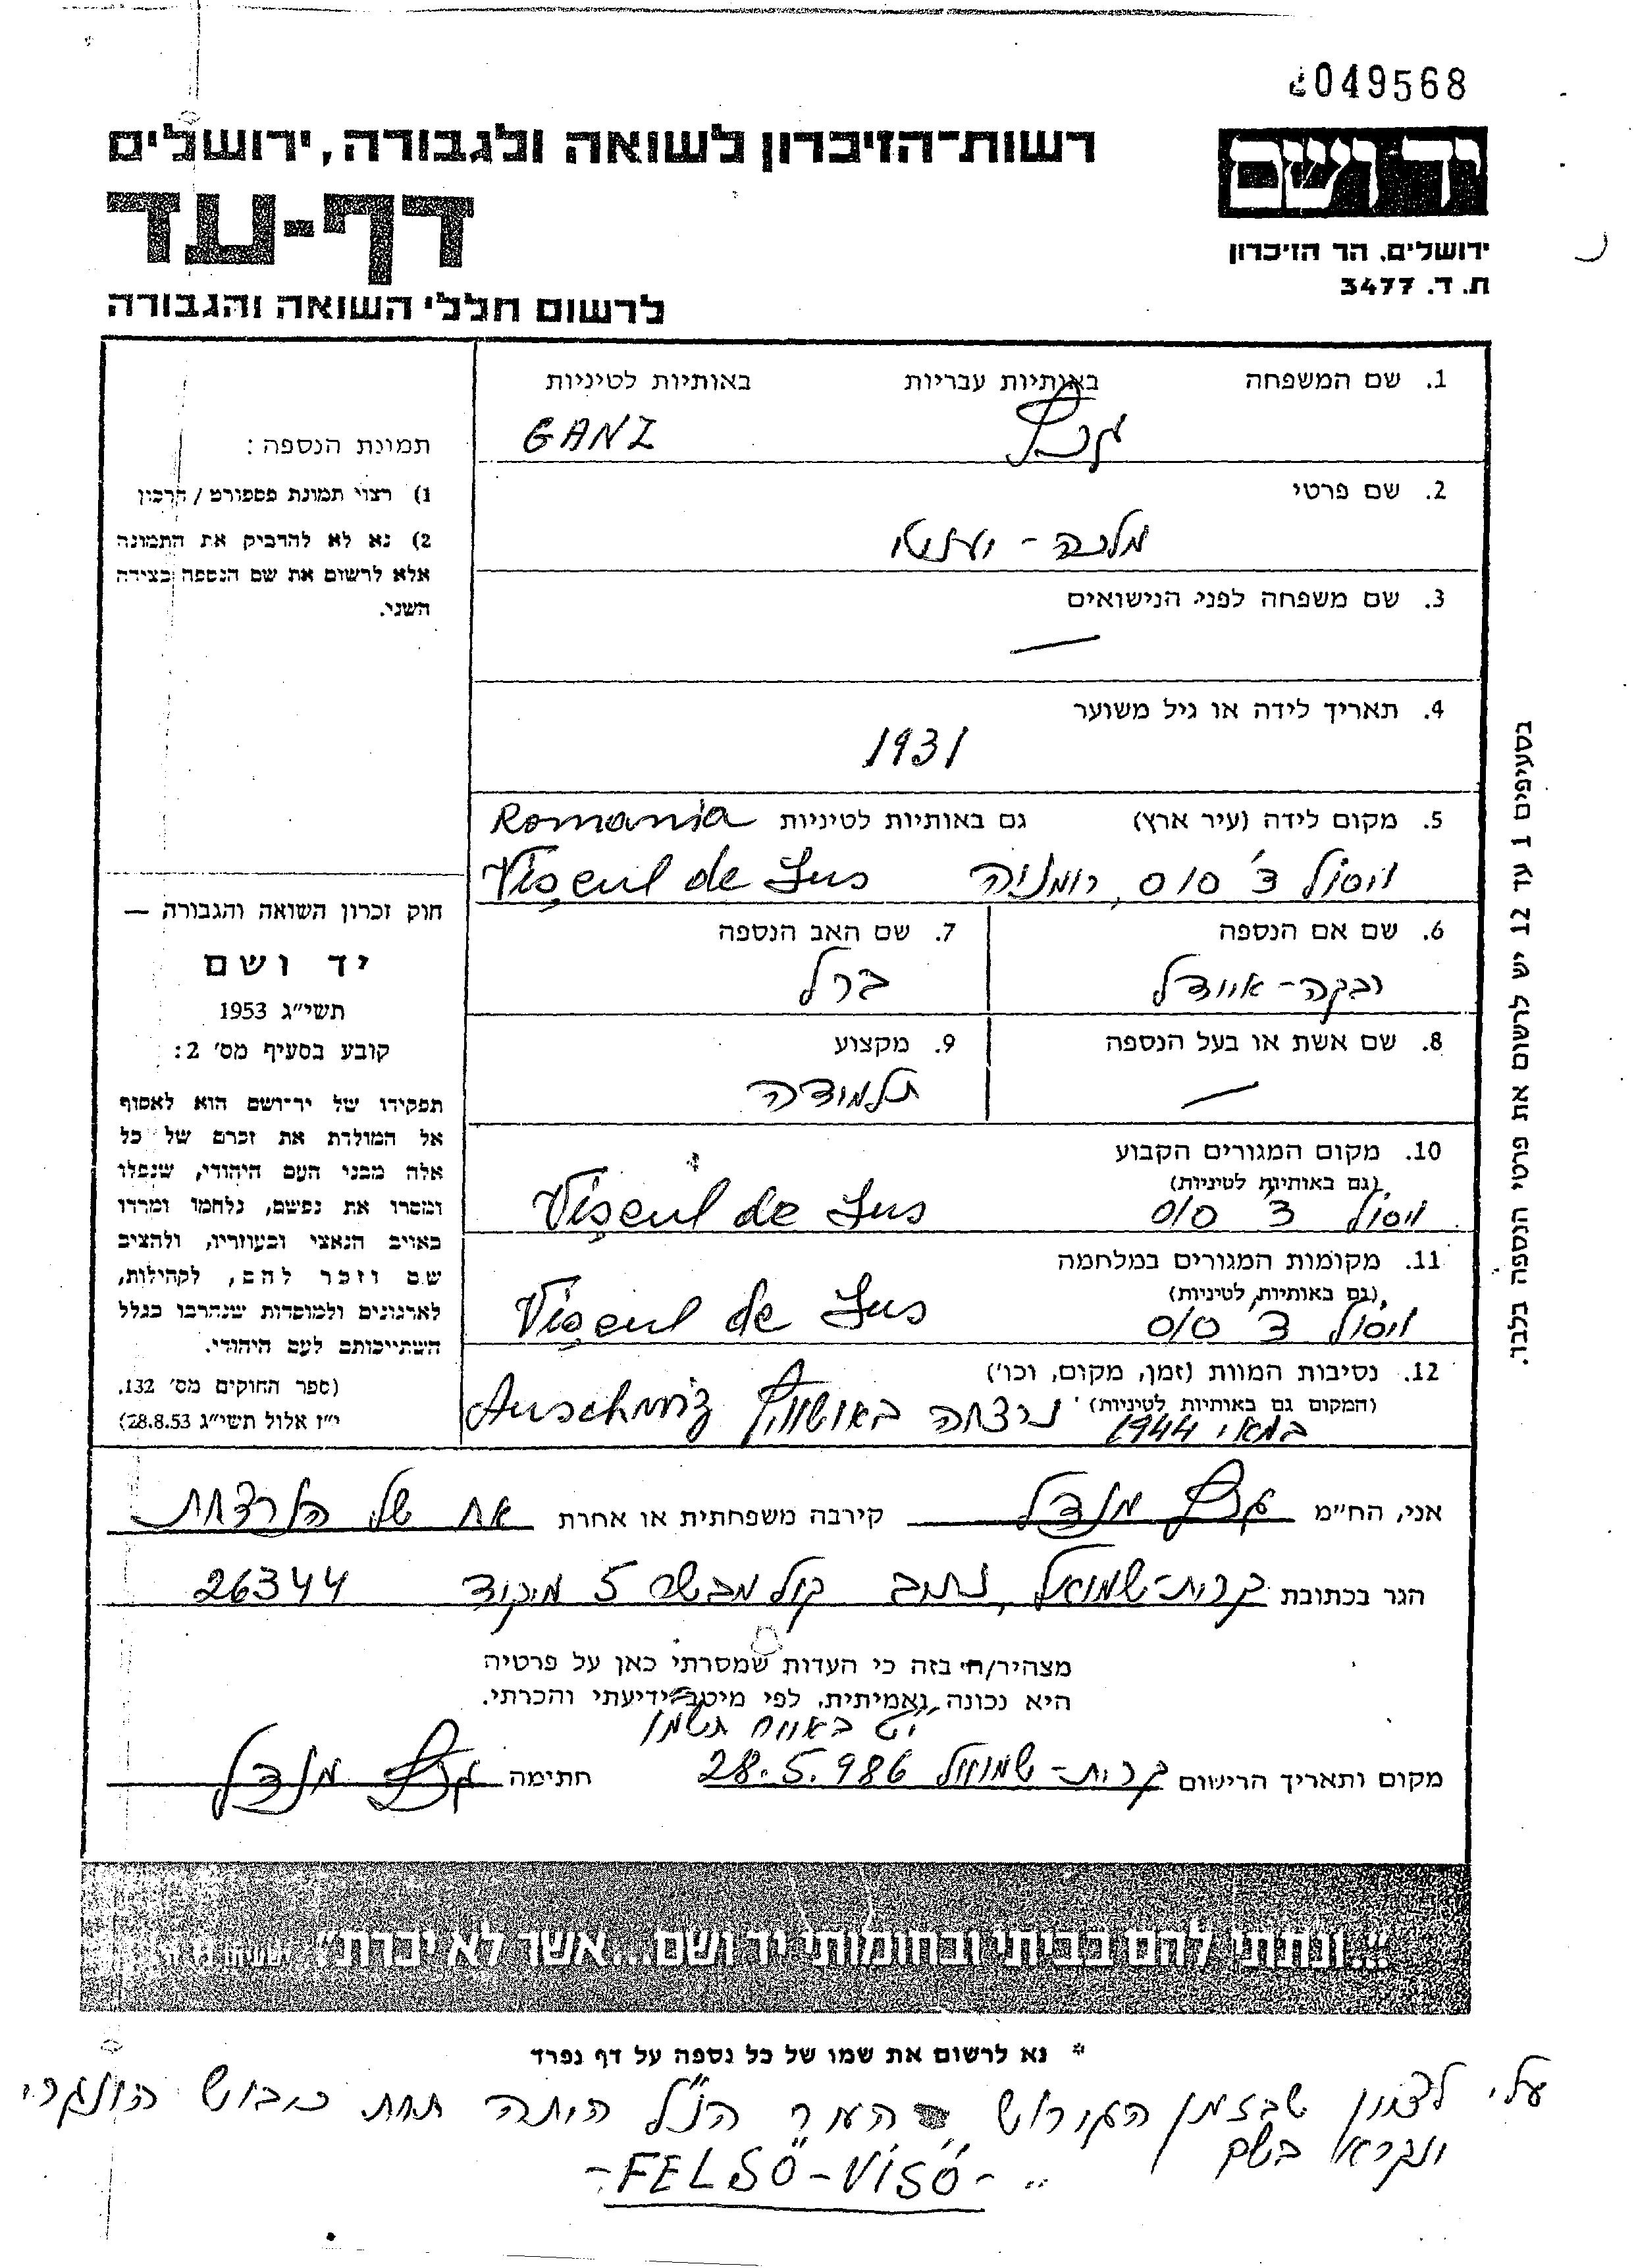 049568
רשות־הזיכרון לשואה ולגבורה, ירושלים
יד ושם
דף-עד
ירושלים. הר הזיכרון
ת. ד. 3477
לרשום חללי השואה והגבורה
1. שם המשפחה באותיות עבריות באותיות לטיניות
גנץ GANZ
2. שם פרטי
מלכה -
3. שם משפחה לפני הנישואים
—
4. תאריך לידה או גיל משוער
1931
5. מקום לידה (עיר ארץ) גם באותיות לטיניות Romania
ויסול ד' סוס, רומניה Vişeul de Sus
6. שם אם הנספה 7. שם האב הנספה
רבקה - איידל ברל
8. שם אשת או בעל הנספה 9. מקצוע
— תלמודה
10. מקום המגורים הקבוע
(גם באותיות לטיניות)
ויסול ד' סוס Vişeul de Sus
11. מקומות המגורים במלחמה
(גם באותיות לטיניות)
ויסול ד' סוס Vişeul de Sus
12. נסיבות המוות (זמן, מקום, וכו')
(המקום גם באותיות לטיניות) נרצחה באושוויץ Auschwiz
במאי 1944
תמונת הנספה :
1) רצוי תמונת פספורט / דרכון
2) נא לא להדביק את התמונה
אלא לרשום את שם הנספה בצידה
השני.
חוק זכרון השואה והגבורה —
יד ושם
תשי״ג 1953
קובע בסעיף מס׳ 2:
תפקידו של יד־ושם הוא לאסוף
אל המולדת את זכרם של כל
אלה מבני העם היהודי, שנפלו
ומסרו את נפשם, נלחמו ומרדו
באויב הנאצי ובעוזריו, ולהציב
שם וזכר להם, לקהילות,
לארגונים ולמוסדות שנחרבו בגלל
השתייכותם לעם היהודי.
(ספר החוקים מס׳ 132,
י״ז אלול תשי״ג 28.8.53)
בסעיפים 1 עד 12 יש לרשום את פרטי הנספה בלבד.
אני, הח״מ גנץ מנדל קירבה משפחתית או אחרת אח של הנרצחת
הגר בכתובת קרית-שמואל, נתיב קול מבשר 5 מיקוד 26344
מצהיר/ה בזה כי העדות שמסרתי כאן על פרטיה
היא נכונה ואמיתית, לפי מיטב ידיעתי והכרתי.
י"ט באייר תשמ"ו
מקום ותאריך הרישום קרית-שמואל 28.5.986 חתימה גנץ מנדל
"...ונתתי להם בביתי ובחומותי יד ושם...אשר לא יכרת" ישעיהו
* נא לרשום את שמו של כל נספה על דף נפרד
עלי לציין שבזמן הגירוש העיר הנ"ל היתה תחת כיבוש הונגרי
ונקרא בשם
-FELSŐ-VISÓ-